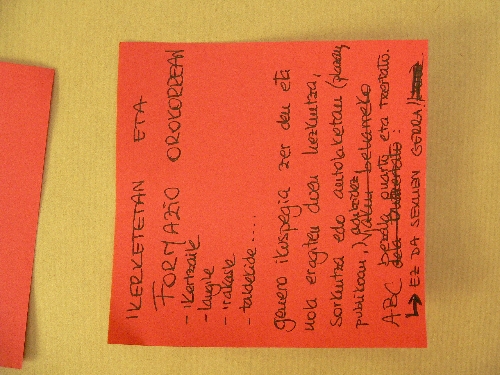 IKERKETETAN ETA
FORMAZIO OROKORREAN
- ikertzaile
- langile
- irakasle
- taldekide....
genero ikuspegia zer den eta
nola eragiten duen hezkuntza,
sorkuntza edo antolaketan (plaza
publikoan,
ABC bezala onartu eta txertatu.
↳ EZ DA SEXUEN GERRA!!